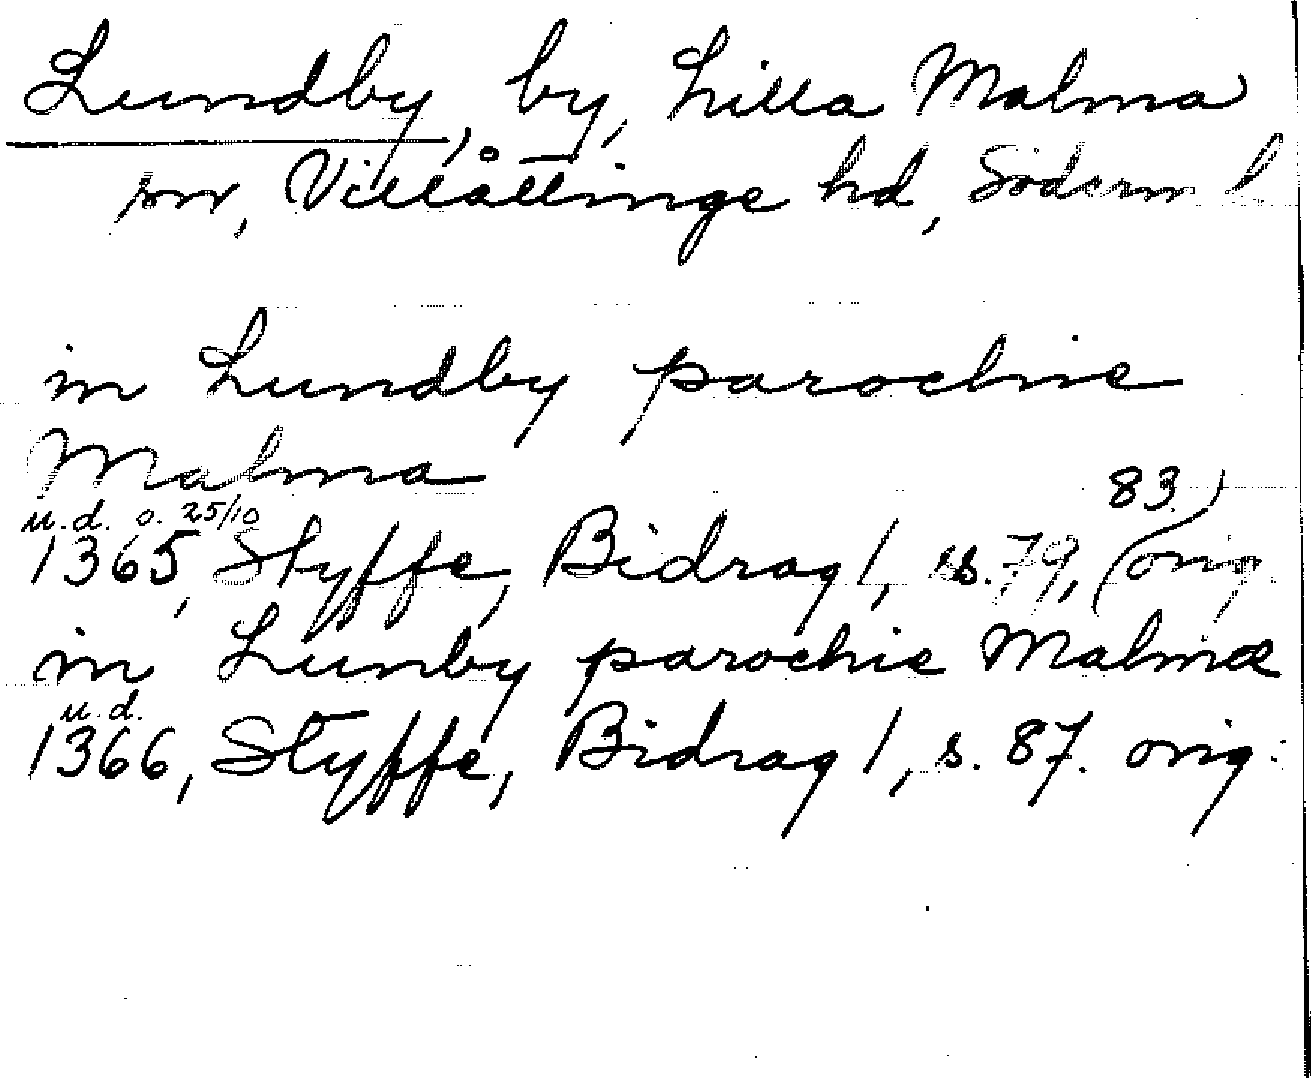 Lundby, by, Lilla Malma
sn, Villåttinge hd, Söderm l.
in Lundby parochie
Malma
83)
u.d. o. 25/10
1365, Styffe, Bidrag 1, s. 79, (orig.
in Lunby parochie Malmæ
u.d.
1366, Styffe, Bidrag 1, s. 87. orig.